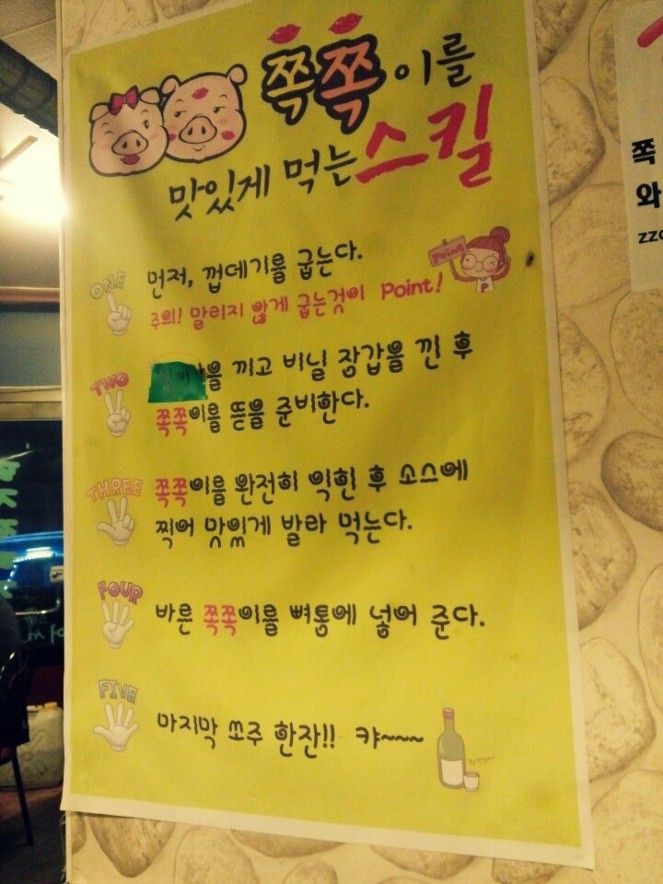 쪽쪽이를
맛있게 먹는 스킬
ONE
먼저, 껍데기를 굽는다.
주의! 말리지 않게 굽는것이 Point!
Point
TWO
을 끼고 비닐 장갑을 낀 후
쪽쪽이를 뜯을 준비한다.
THREE
쪽쪽이를 완전히 익힌 후 소스에
찍어 맛있게 발라 먹는다.
FOUR
바른 쪽쪽이를 뼈통에 넣어 준다.
FIVE
마지막 쏘주 한잔!! 캬~~~~
쪽
와
zzo